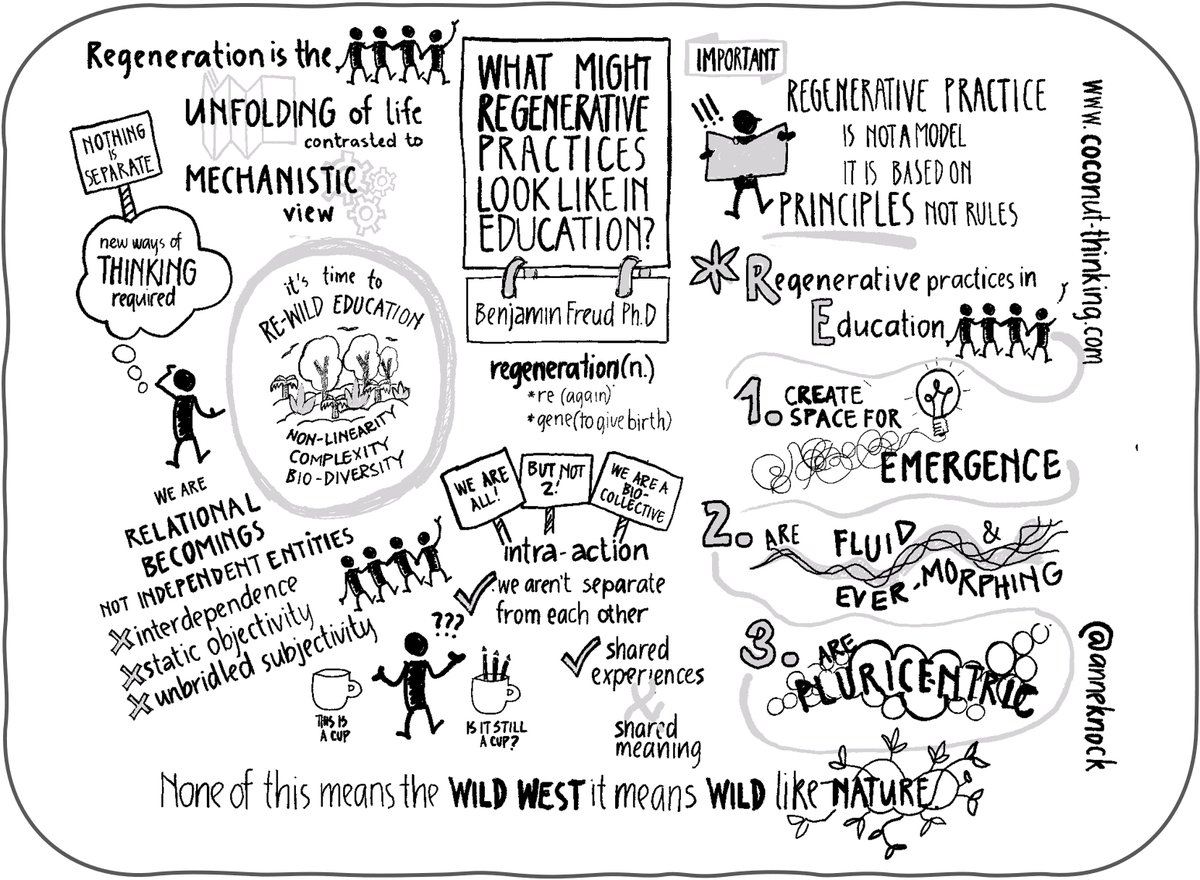 Regeneration is the
UNFOLDING of life
contrasted to
MECHANISTIC
view
NOTHING
IS
SEPARATE
new ways of
THINKING
required
it's time to
RE-WILD EDUCATION
NON-LINEARITY
COMPLEXITY
BIO-DIVERSITY
WE ARE
RELATIONAL
BECOMINGS
NOT INDEPENDENT ENTITIES
X interdependence
X static objectivity
X unbridled subjectivity
WHAT MIGHT
REGENERATIVE
PRACTICES
LOOK LIKE IN
EDUCATION?
Benjamin Freud Ph.D
regeneration (n.)
*re (again)
*gene (to give birth)
WE ARE
ALL!
BUT NOT
2!
WE ARE A
BIO-
COLLECTIVE
intra-action
we aren't separate
from each other
shared
experiences
&
shared
meaning
???
THIS IS
A CUP
IS IT STILL
A CUP?
IMPORTANT
!!!
REGENERATIVE PRACTICE
IS NOT A MODEL
IT IS BASED ON
PRINCIPLES NOT RULES
* Regenerative practices in
Education
1. CREATE
SPACE FOR
EMERGENCE
2. ARE FLUID &
EVER-MORPHING
3. ARE
PLURICENTRIC
None of this means the WILD WEST it means WILD like NATURE
www.coconut-thinking.com
@anneknock